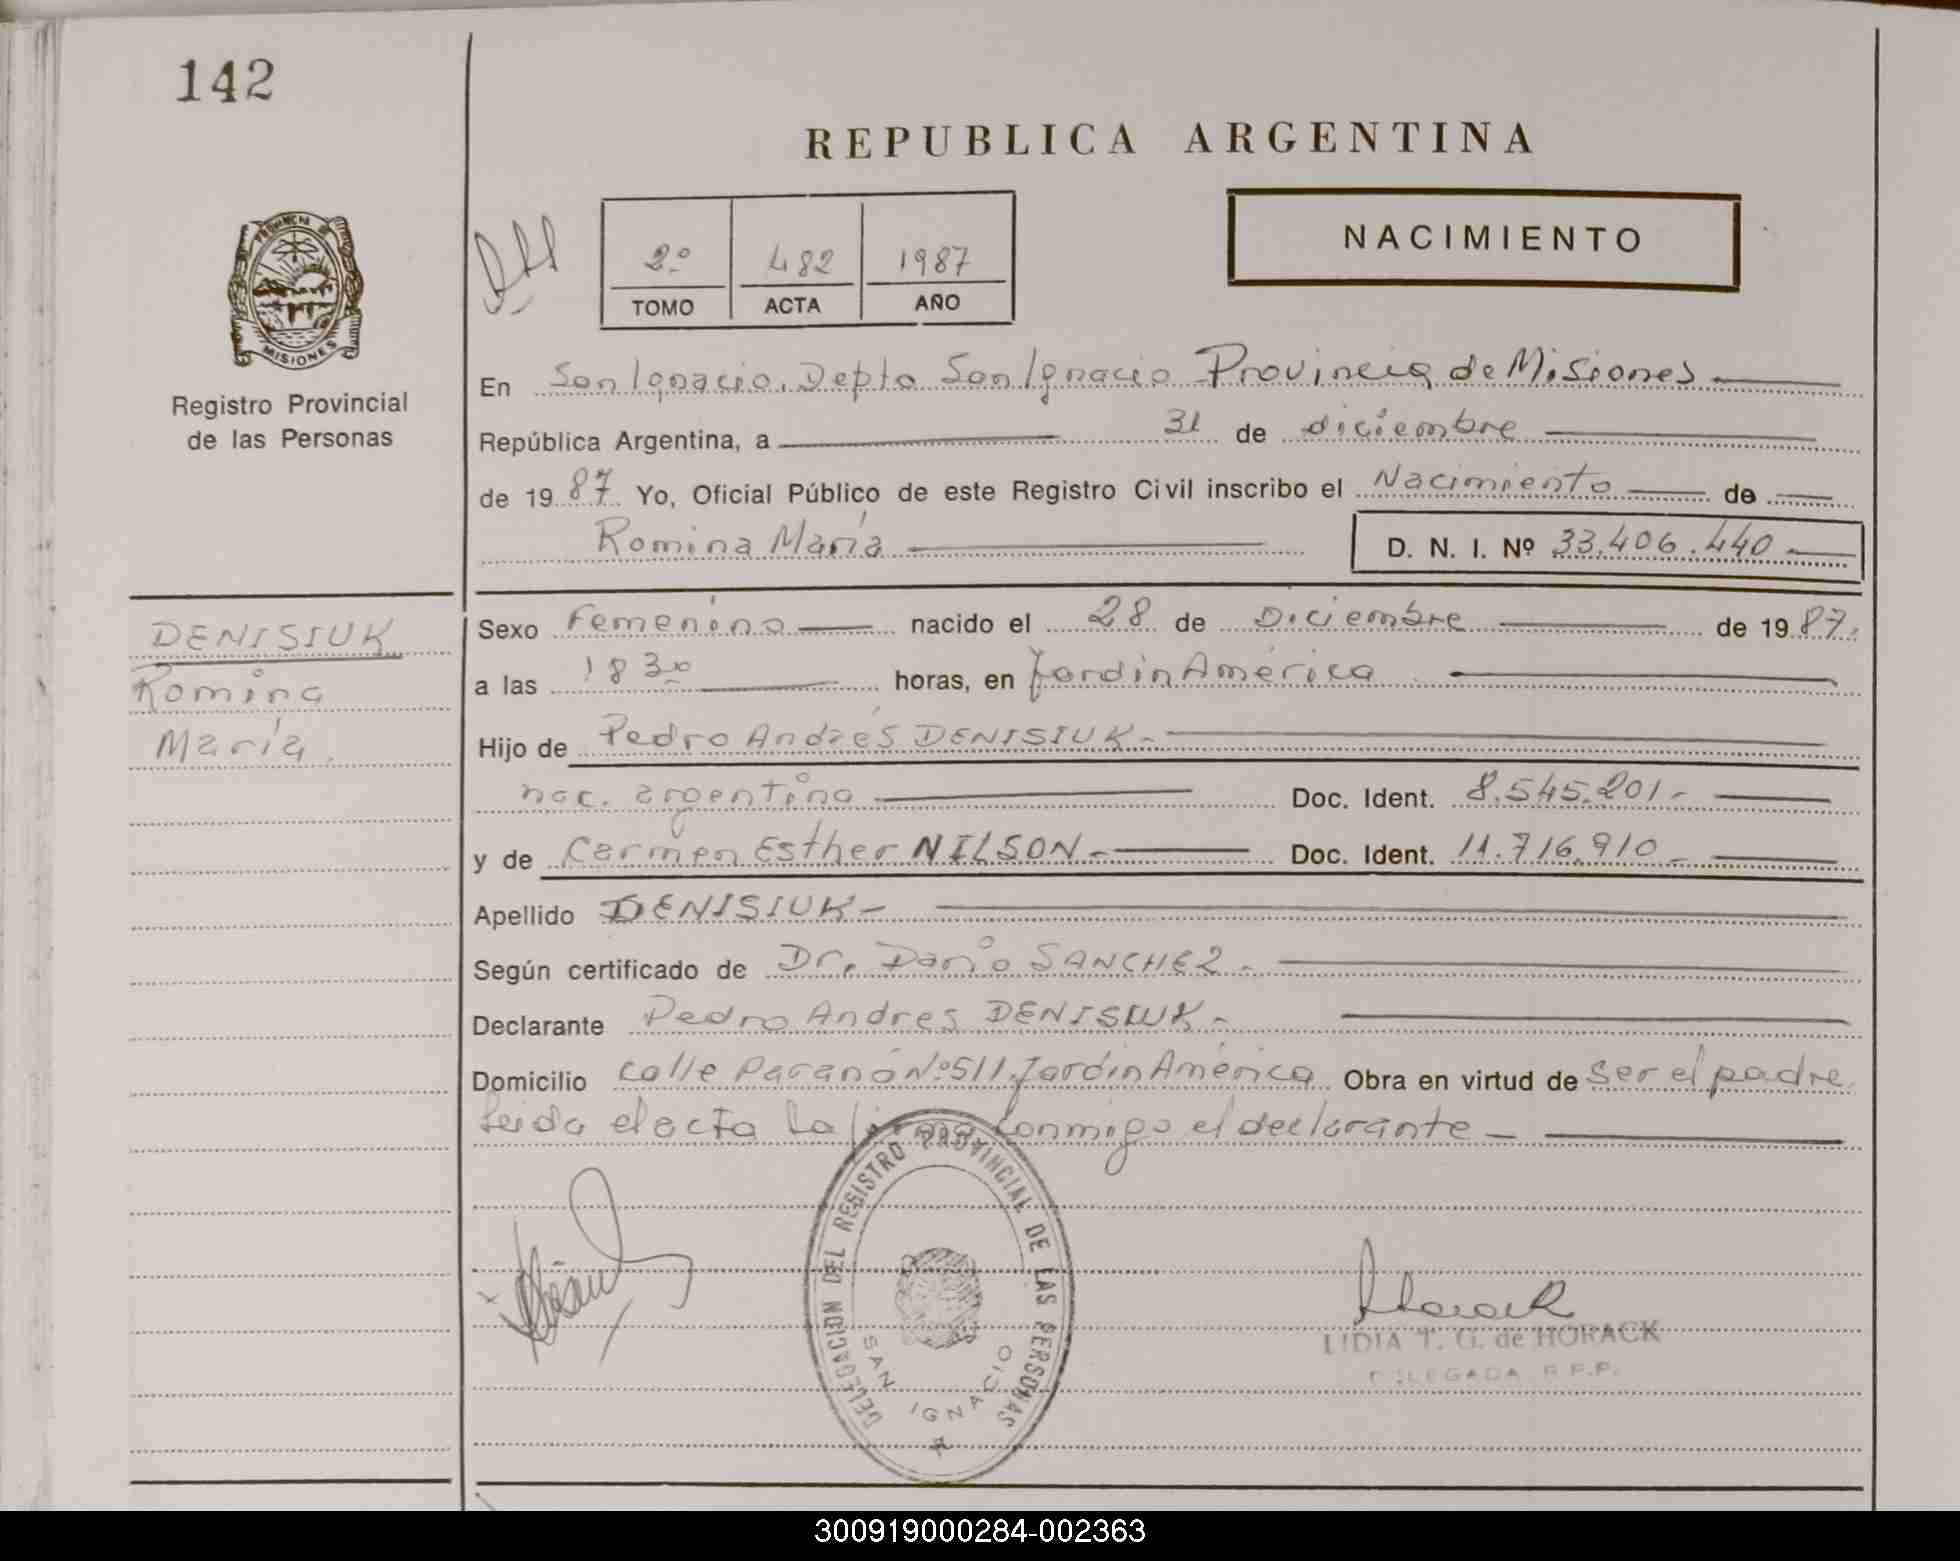 142
REPUBLICA ARGENTINA
2º 482 1987
TOMO ACTA AÑO
NACIMIENTO
PROVINCIA DE
MISIONES
Registro Provincial
de las Personas
En San Ignacio, Depto San Ignacio Provincia de Misiones
República Argentina, a 31 de diciembre
de 1987 Yo, Oficial Público de este Registro Civil inscribo el Nacimiento de
Romina María D. N. I. Nº 33.406.440
DENISIUK
Romina
María
Sexo Femenino nacido el 28 de Diciembre de 1987.
a las 1830 horas, en Jardin América
Hijo de Pedro Andrés DENISIUK.-
nac. argentina Doc. Ident. 8.545.201.-
y de Carmen Esther NILSON.- Doc. Ident. 11.716.910.-
Apellido DENISIUK-
Según certificado de Dr. Darío SANCHEZ.-
Declarante Pedro Andres DENISIUK.-
Domicilio calle Paraná Nº511, Jardin América Obra en virtud de ser el padre.
Leida el acta la firma conmigo el declarante -
DELEGACION DEL REGISTRO PROVINCIAL DE LAS PERSONAS
SAN IGNACIO
Horack
LIDIA T. G. de HORACK
DELEGADA R.P.P.
300919000284-002363